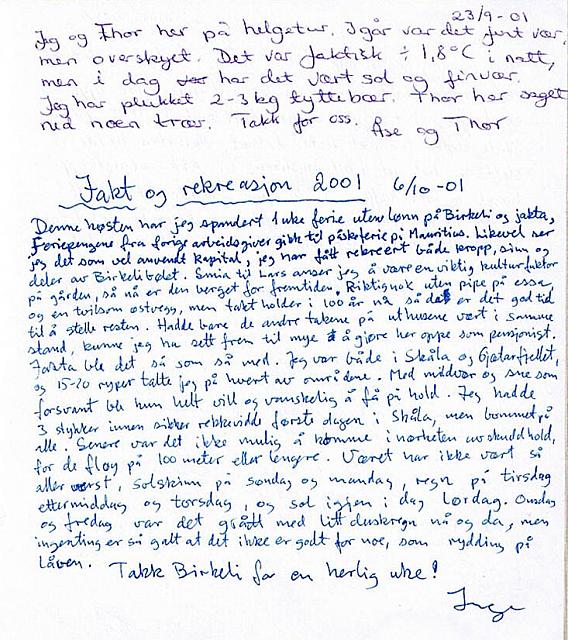 23/9-01
Jeg og Thor her på helgetur. Igår var det fint vær,
men overskyet. Det var faktisk ÷ 1,8°C i natt,
men i dag har det vært sol og finvær.
Jeg har plukket 2-3 kg tyttebær. Thor har saget
ned noen trær. Takk for oss. Åse og Thor
Jakt og rekreasjon 2001 6/10-01
Denne høsten har jeg spandert 1 uke ferie uten lønn på Birkeli og jakta,
Feriepengene fra forige arbeidsgiver gikk til påskeferie på Mauritius. Likevel ser
jeg det som vel anvendt kapital, jeg har fått rekreert både kropp, sinn og
deler av Birkelibølet. Smia til Lars anser jeg å være en viktig kulturfaktor
på gården, så nå er den berget for fremtiden. Riktignok uten pipe på essa,
og en tvilsom østvegg, men taket holder i 100 år nå så det er det god tid
til å stelle resten. Hadde bare de andre takene på uthusene vært i samme
stand, kunne jeg ha sett frem til mye å gjøre her oppe som pensjonist.
Jakta ble det så som så med. Jeg var både i Skåla og Gjetarfjellet,
og 15-20 ryper talte jeg på hvert av områdene. Med mildvær og snø som
forsvant ble hun helt vill og vanskelig å få på hold. Jeg hadde
3 stykker innen sikker rekkevidde første dagen i Skåla, men bommet på
alle. Senere var det ikke mulig å komme i nærheten av skudd hold,
for de fløy på 100 meter eller lengere. Været har ikke vært så
aller værst, solskinn på søndag og mandag, regn på tirsdag
ettermiddag og torsdag, og sol igjen i dag lørdag. Onsdag
og fredag var det grått med litt duskregn nå og da, men
ingenting er så galt at det ikke er godt for noe, som rydding på
låven. Takk Birkeli for en herlig uke!
Inge